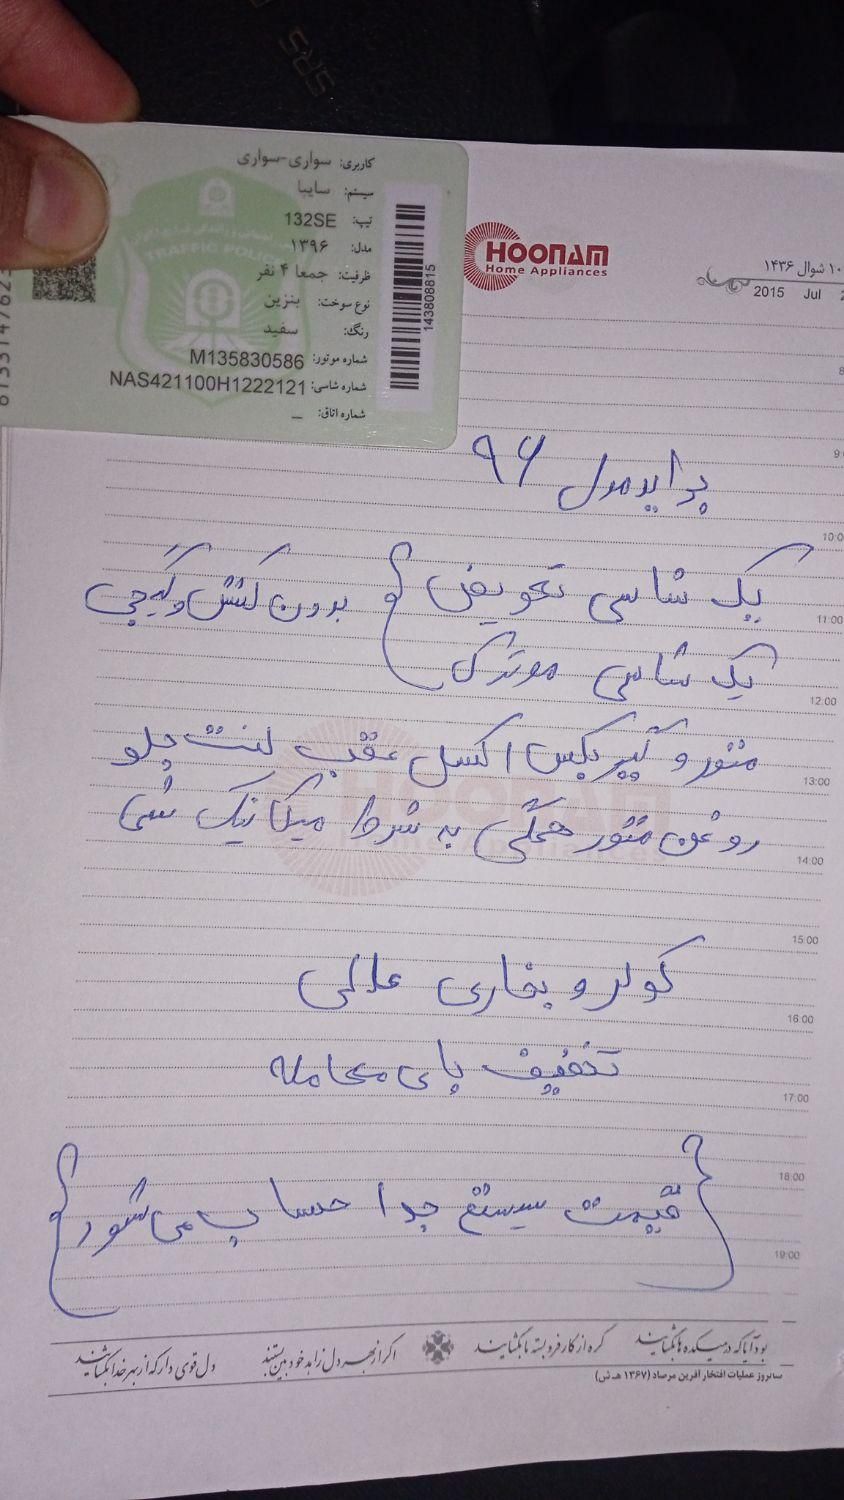 کاربری: سواری-سواری
سیستم: سایپا
تیپ: 132SE
مدل: ۱۳۹۶
ظرفیت: جمعا ۴ نفر
نوع سوخت: بنزین
رنگ: سفید
شماره موتور: M135830586
شماره شاسی: NAS421100H1222121
شماره اتاق: _
143808815
TRAFFIC POLICE
CHOONAM
Home Appliances
۱۰ شوال ۱۴۳۶
2015 Jul
پراید مدل ۹۶
یک شاسی تعویض و بدون کشش و گیجی
یک شاسی موترک
متور و گیربکس اکسل عقب لنت جلو
روغن متور همگی به شرط میکانیک شی
کولر و بخاری عالی
تخفیف پای معامله
قیمت سیستم جدا حساب می شود
10:00
11:00
12:00
13:00
14:00
15:00
16:00
17:00
18:00
19:00
بود آیا که در میکده ها بگشایند گره از کار فروبسته ما بگشایند
اگر از بهر دل زاهد خودبین بستند دل قوی دار که از بهر خدا بگشایند
سالروز عملیات افتخار آفرین مرصاد (۱۳۶۷ هـ ش)